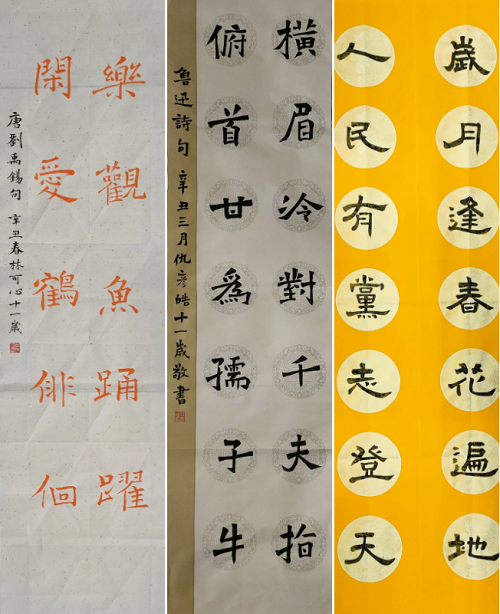 樂觀魚踴躍
閑愛鶴俳佪
唐劉禹錫句 辛丑春林可心十一歲
橫眉冷對千夫指
俯首甘爲孺子牛
魯迅詩句 辛丑三月仇彥皓十一歲敬書
歲月逢春花遍地
人民有黨志登天